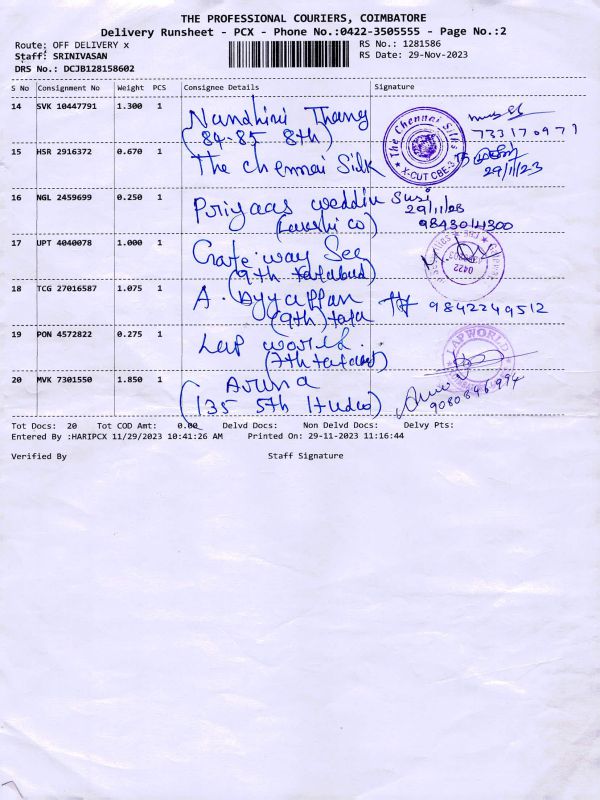 THE PROFESSIONAL COURIERS, COIMBATORE
Delivery Runsheet - PCX - Phone No.:0422-3505555 - Page No.:2
Route: OFF DELIVERY x
RS No.: 1281586
Staff: SRINIVASAN
RS Date: 29-Nov-2023
DRS No.: DCJB128158602
S No Consignment No Weight PCS Consignee Details Signature
14 SVK 10447791 1.300 1 Nandhini Thang
(84-85 8th)
The Chennai Silks
X-CUT CBE-3
733170971
15 HSR 2916372 0.670 1 The Chennai Silk
29/11/23
16 NGL 2459699 0.250 1 Priyaas weddin Susi
29/11/23
9843014300
17 UPT 4040078 1.000 1 Gate way See
(9th tatabad)
0422
18 TCG 27016587 1.075 1 A. Ayyappan
(9th) tata
9842249512
19 PON 4572822 0.275 1 Lap world.
LAP WORLD
20 MVK 7301550 1.850 1 Aruna
(135 5th Hudco)
9080846994
Tot Docs: 20 Tot COD Amt: 0.00 Delvd Docs: Non Delvd Docs: Delvy Pts:
Entered By :HARIPCX 11/29/2023 10:41:26 AM Printed On: 29-11-2023 11:16:44
Verified By Staff Signature